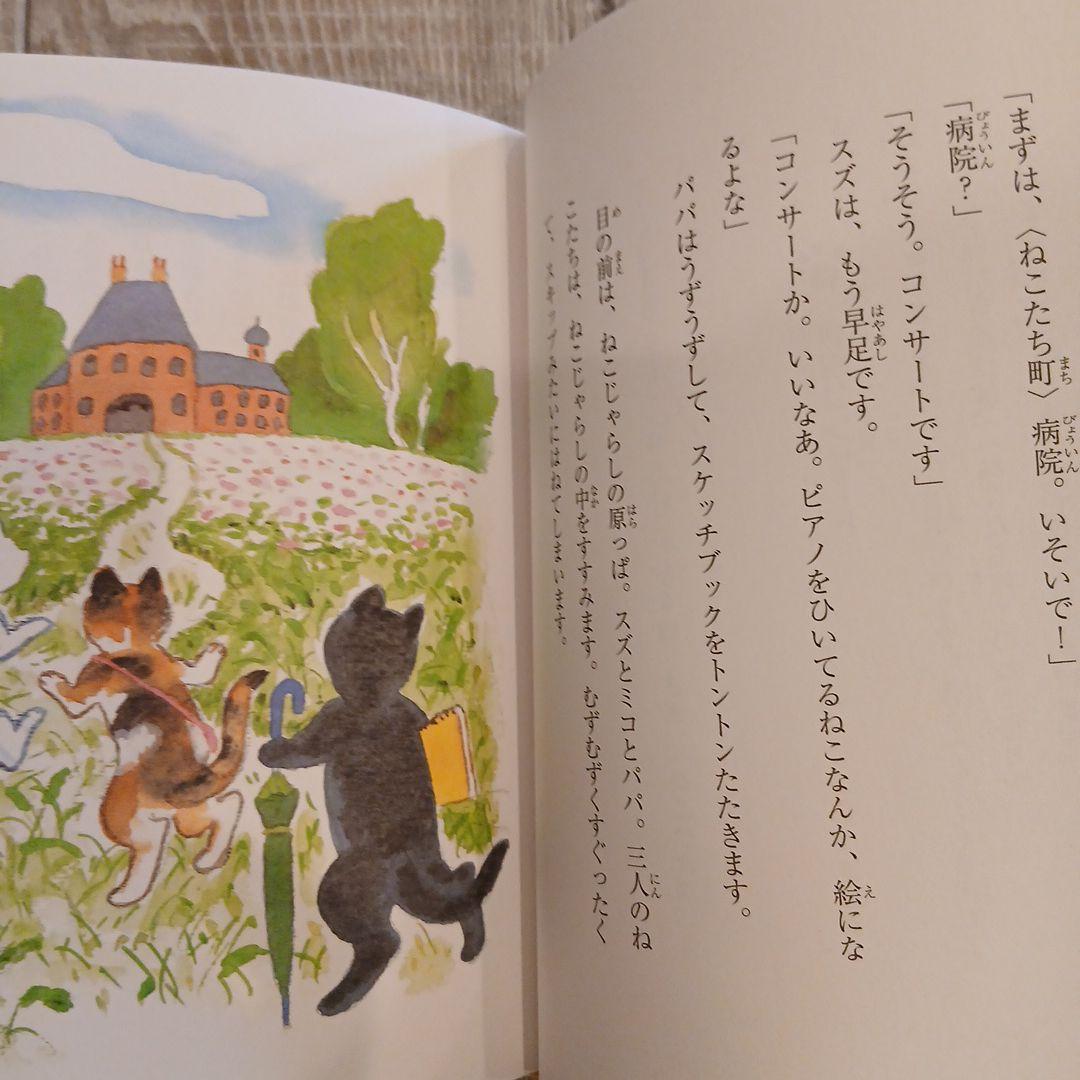 「まずは、〈ねこたち町〉病院。いそいで!」
「病院?」
「そうそう。コンサートです」
スズは、もう早足です。
「コンサートか。いいなあ。ピアノをひいてるねこなんか、絵にな
るよな」
パパはうずうずして、スケッチブックをトントンたたきます。
目の前は、ねこじゃらしの原っぱ。スズとミコとパパ。三人のね
こたちは、ねこじゃらしの中をすすみます。むずむずくすぐったく
て、スキップみたいにはねてしまいます。